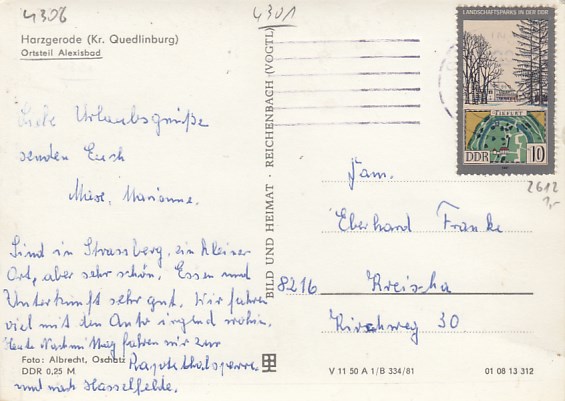 4306
4301
Harzgerode (Kr. Quedlinburg)
Ortsteil Alexisbad
Liebe Urlaubsgrüße
senden Euch
Marianne.
Sind in Strassberg, ein kleiner
Ort, aber sehr schön. Essen und
Unterkunft sehr gut. Wir fahren
viel mit den Auto irgend wohin.
Heute Nachmittag fahren wir zur
Rappbodetalsperre
und nach Hasselfelde.
Foto: Albrecht, Oschatz
DDR 0,25 M
BILD UND HEIMAT · REICHENBACH (VOGTL)
LANDSCHAFTSPARKS IN DER DDR
DDR 10
2612
Fam.
Eberhard Franke
8216 Kreischa
Kirschweg 30
V 11 50 A 1/B 334/81
01 08 13 312